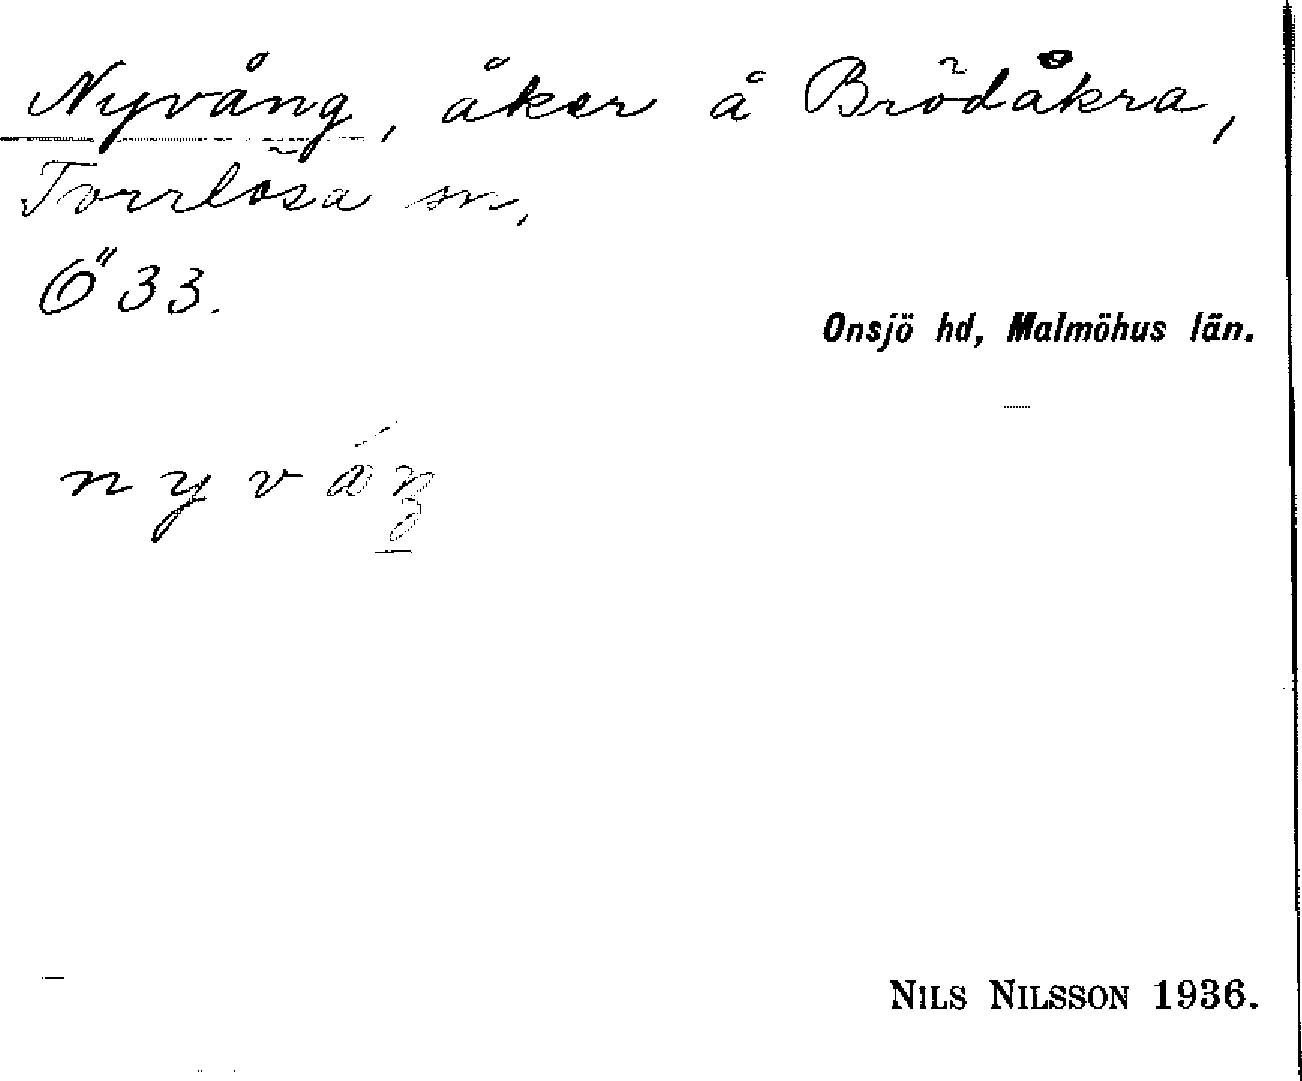 Nyvång, åker å Brödåkra,
Torrlösa sn,
Ö 33.
Onsjö hd, Malmöhus län.
NILS NILSSON 1936.